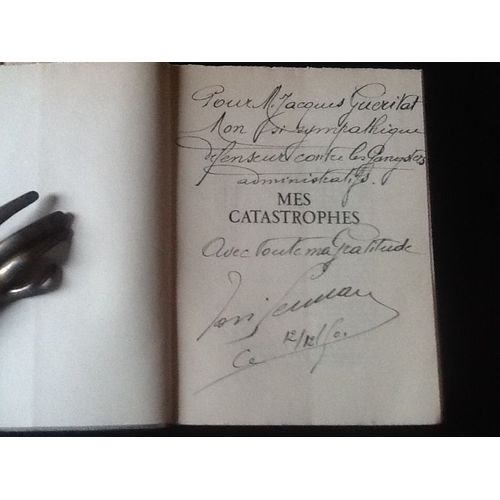 Pour M. Jacques Guéritat
Mon si sympathique
défenseur contre les Gangsters
administratifs.
MES
CATASTROPHES
Avec toute ma Gratitude
Ce 12/12/50.